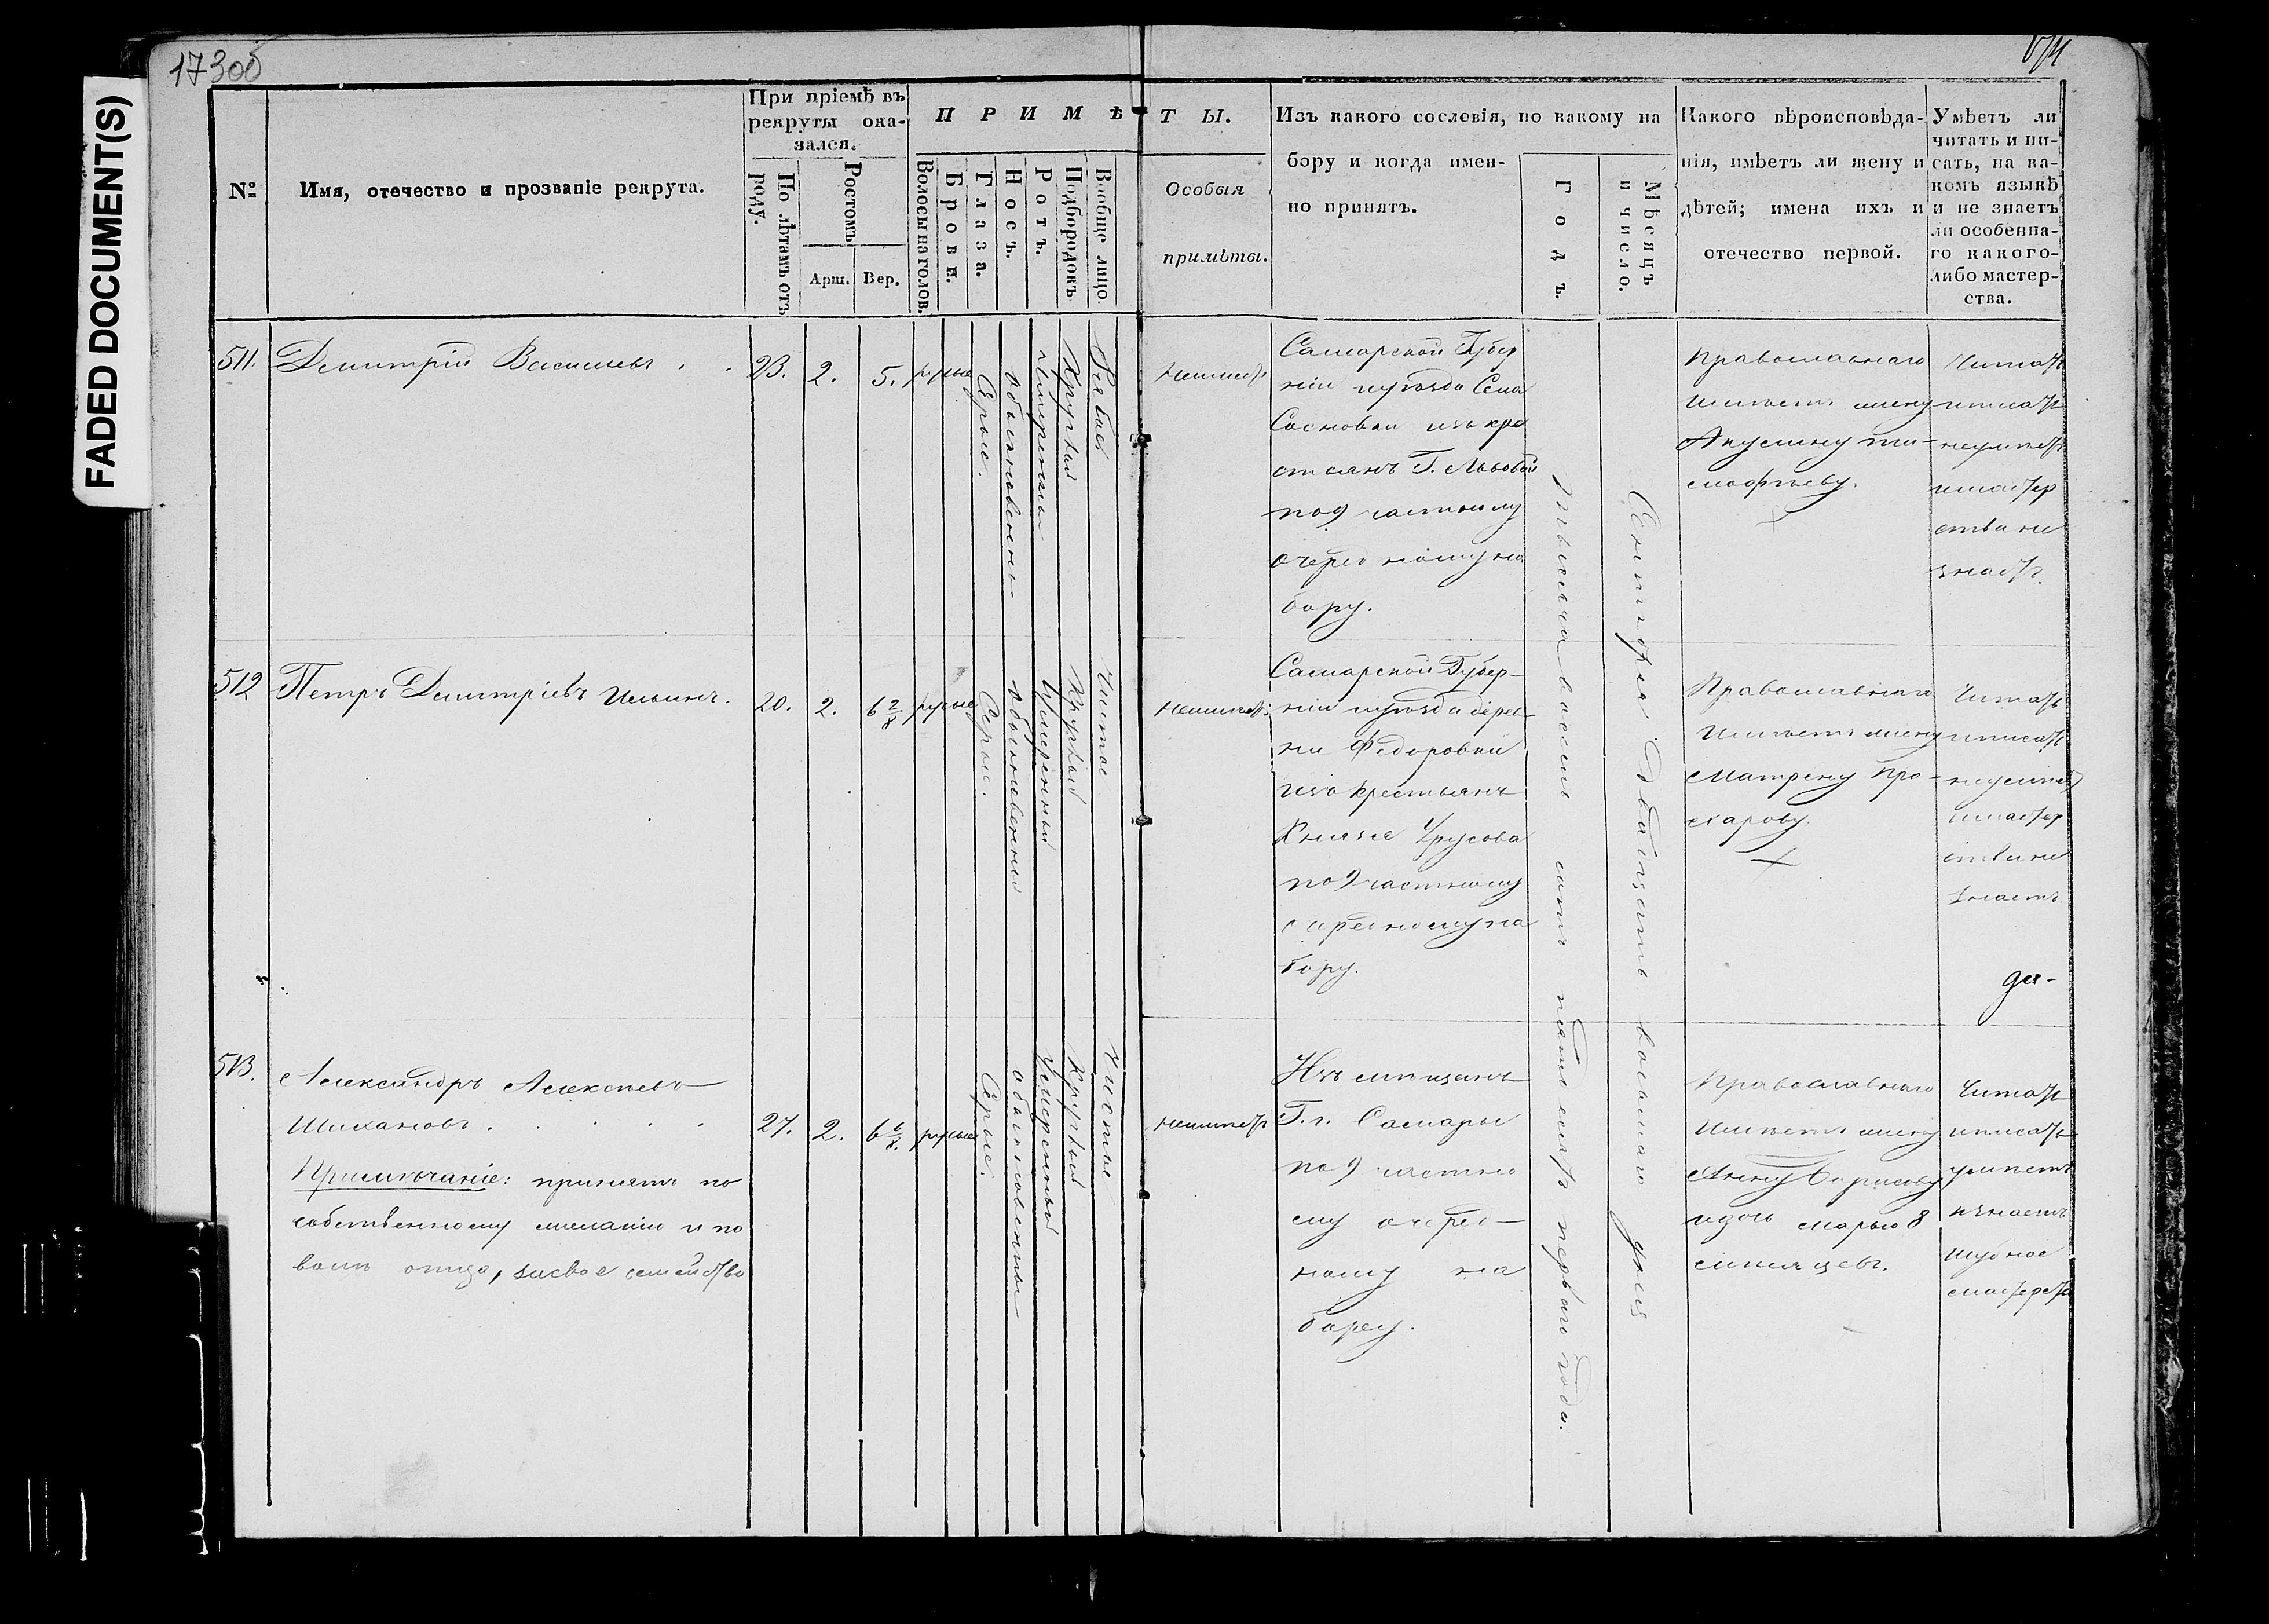 173об
FADED DOCUMENT(S)
№
Имя, отечество и прозваніе рекрута.
При пріемѣ въ
рекруты ока-
зался.
По лѣтамъ отъ
роду.
Ростомъ
Арш.
Вер.
ПРИМѢТЫ.
Волосы на голов.
Брови.
Глаза.
Носъ.
Ротъ.
Подбородокъ
Вообще лицо.
Особыя
примѣты.
Изъ какого сословія, по какому на
бору и когда имен-
но принятъ.
Годъ.
Мѣсяцъ
и число.
Какого вѣроисповѣда-
нія, имѣетъ ли жену и
дѣтей; имена ихъ и
отечество первой.
Умѣетъ ли
читать и пи-
сать, на ка-
комъ языкѣ
и не знаетъ
ли особенна-
го какого-
либо мастер-
ства.
511.
Демитрій Васильевъ . .
23.
2.
5.
русые
Серые.
обыкновенны
умеренный
Круглый
Рябое
неимеет
Самарской Губер
ніи и уезда Села
Сосновки изъ кре
стьянъ Г. Львовой
по 9 частному
очередному на
бору.
Православнаго
имѣетъ жену
Акулину Ти-
мофѣеву.
Читать
и писать
неумѣетъ
и мастер
ства не
знаетъ.
512
Петръ Демитріевъ Ильинъ.
20.
2.
6 2/8
русые
Серые.
обыкновенный
Умеренный
Круглый
Чистое
неимеетъ
Самарской Губер-
ніи и уезда дерев-
ни Федоровки
изъ крестьянъ
Князя Урусова
по 9 частному
очередному на
бору.
Православнаго
Имѣетъ жену
Матрену Про-
харову.
Читать
и писать
неумѣетъ
и мастер
ства не
знаетъ
да-
513.
Александръ Алексѣевъ
Шихановъ . . . .
Примѣчаніе: принятъ по
собственному желанію и по
воли отца, за свое семейство
27.
2.
6 6/8.
русые
Серые.
обыкновенный
Умеренный
Круглый
Чистое
неимѣетъ
Изъ мѣщанъ
Г. г. Самары
по 9 частно
му очеред-
ному на
бору.
Православнаго
Имѣетъ жену
Анну Борисову
и дочь Марью 8
мѣсяцевъ.
Читать
и писать
умѣетъ
и знаетъ
шубное
мастерство
тысяча восемь сотъ пятьдесятъ перваго года.
Сентября двадцать восьмаго дня